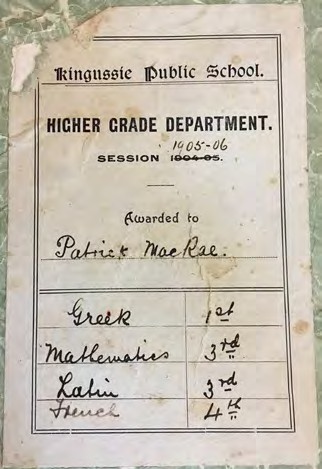 Kingussie Public School.
HIGHER GRADE DEPARTMENT.
1905-06
SESSION 1904-05.
Awarded to
Patrick MacRae.
Greek 1st
Mathematics 3rd
Latin 3rd
French 4th